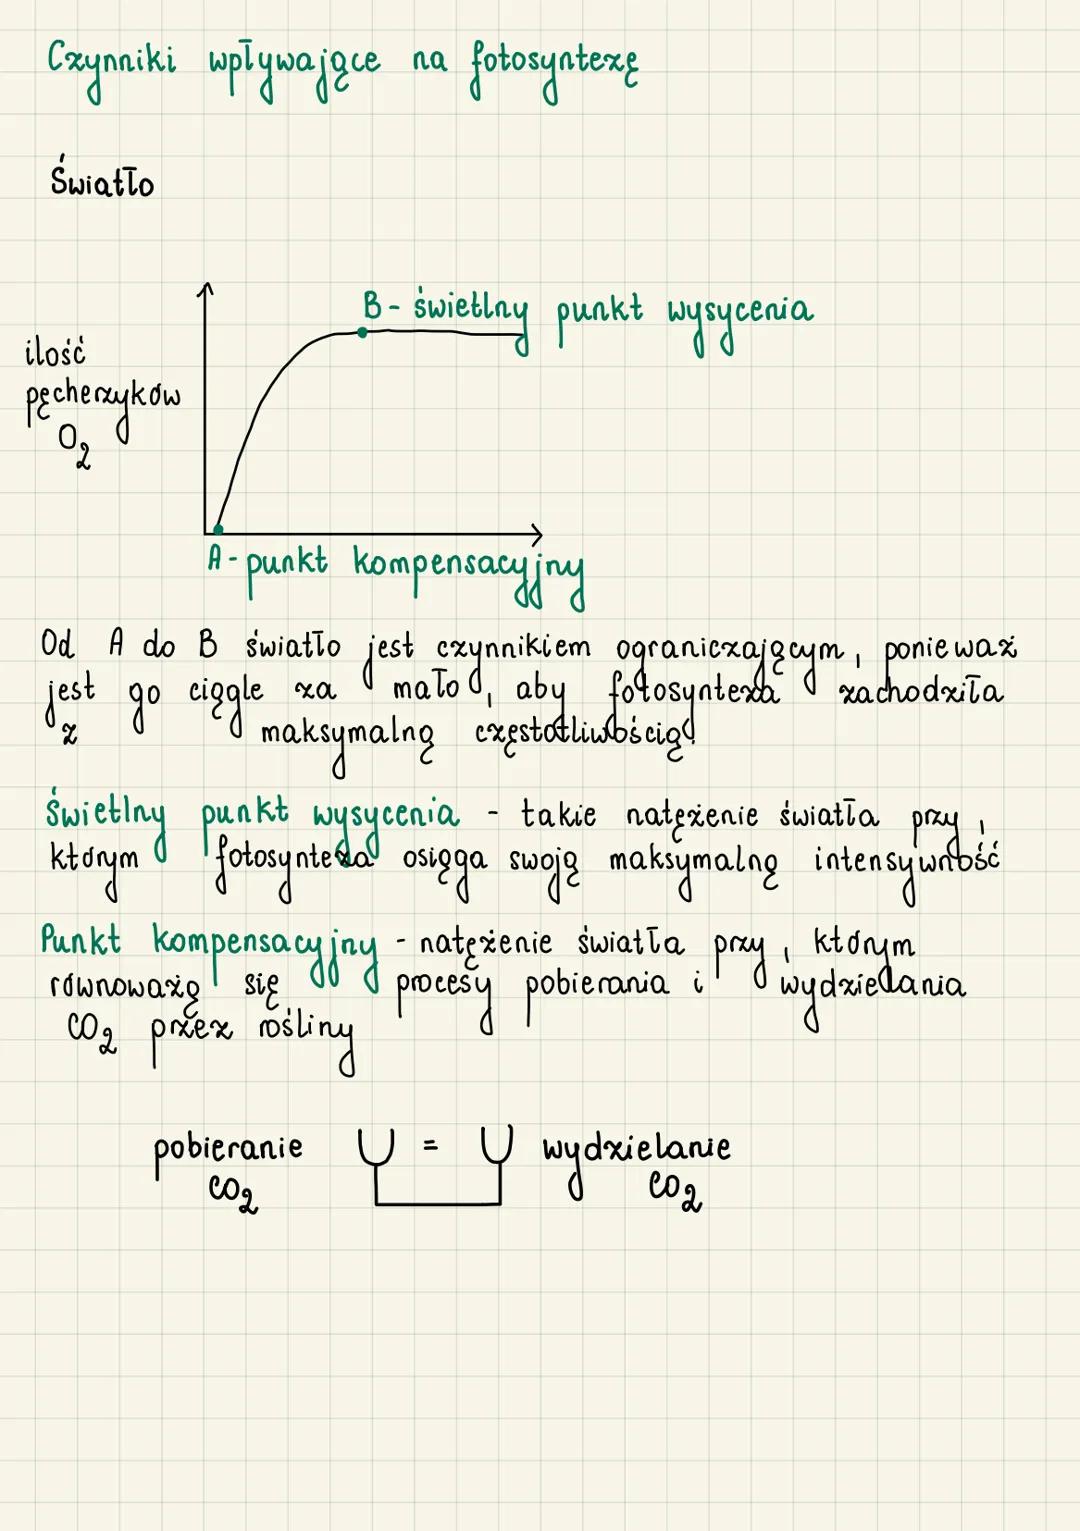 Czynniki wpływające na fotosyntezę
Światło
B - świetlny punkt wysycenia
ilość
pęcherzyków
O₂
A - punkt kompensacyjny
Od A do B światło jest czynnikiem ograniczającym, ponieważ
jest go ciągle za mało, aby fotosynteza zachodziła
z maksymalną częstotliwością
Świetlny punkt wysycenia - takie natężenie światła przy,
którym fotosynteza osiąga swoją maksymalną intensywność
Punkt kompensacyjny - natężenie światła przy, którym
równoważą się procesy pobierania i wydzielania
CO₂ przez rośliny
pobieranie = wydzielanie
CO₂ CO₂